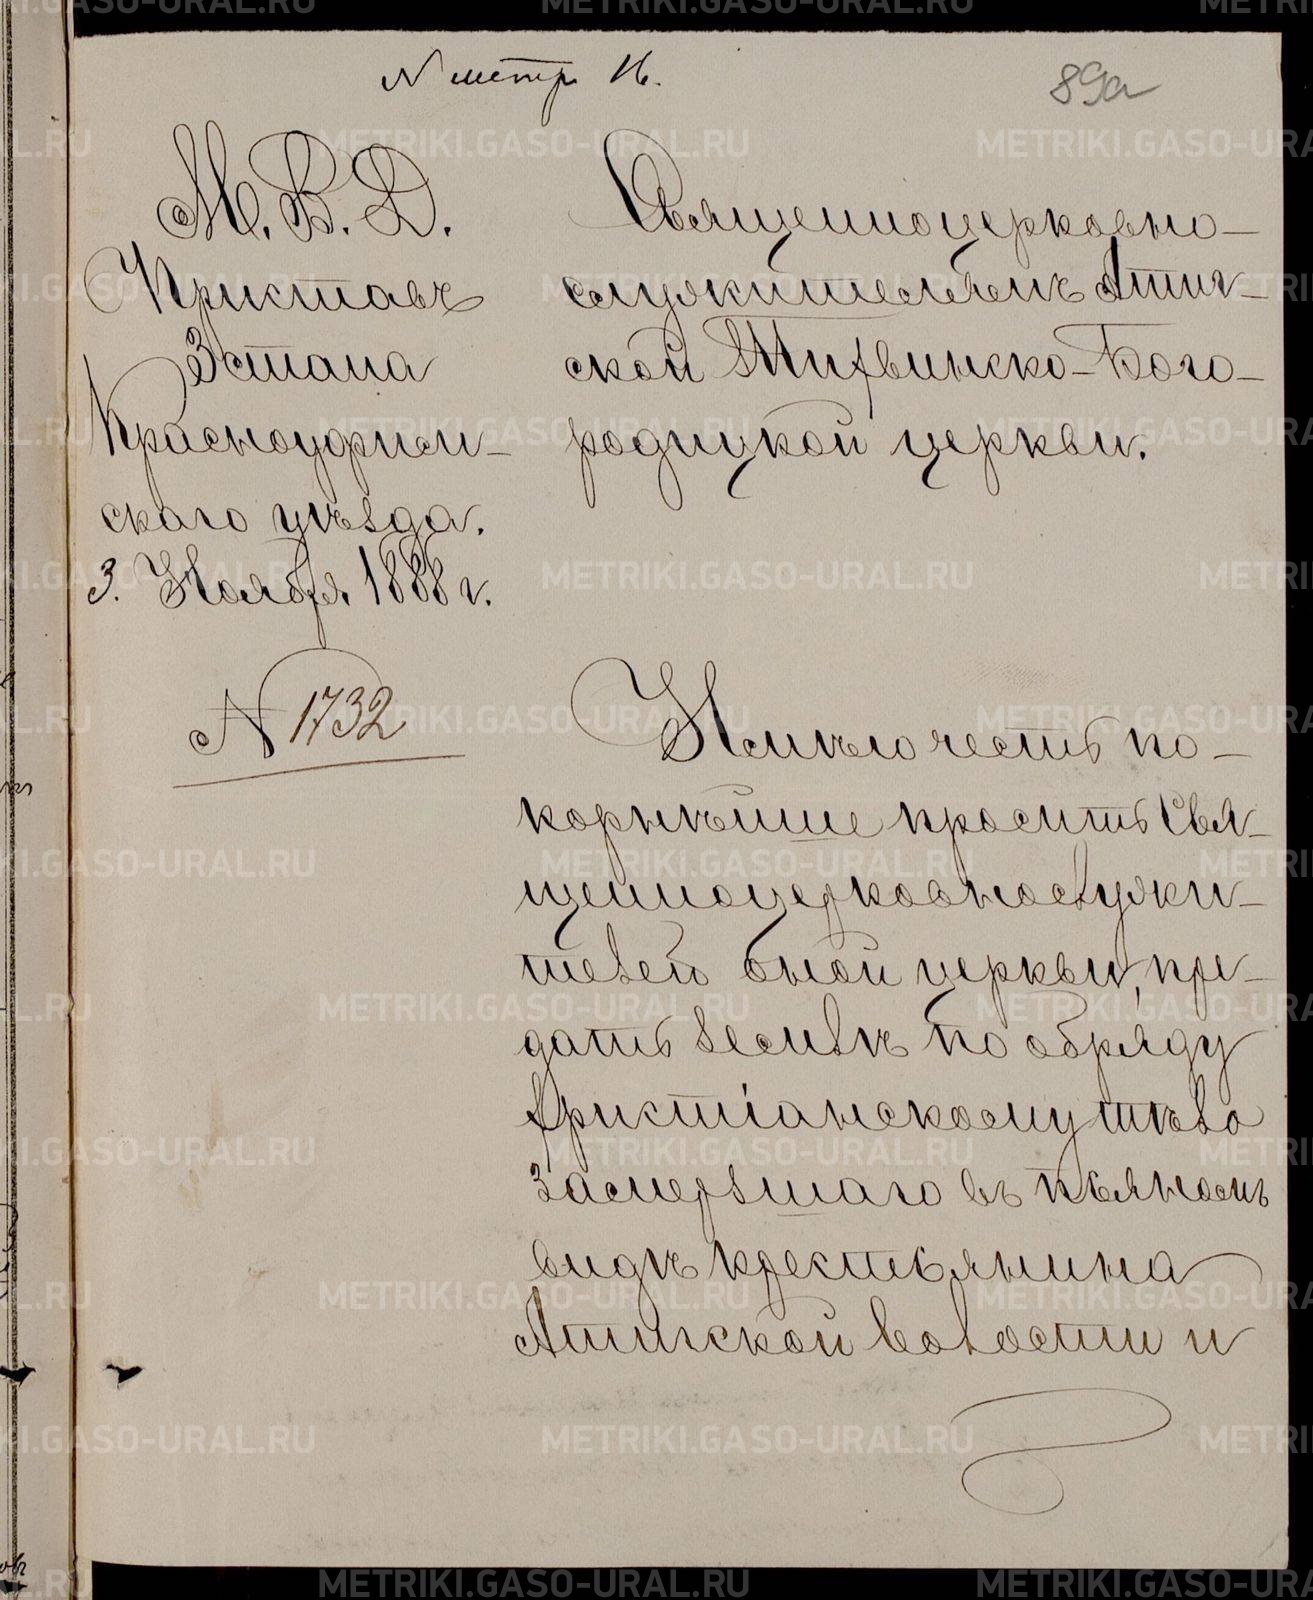 N метр 16.
89а
М. В. Д.
Приставъ
3 стана
Красноуфим-
скаго уѣзда.
3. Ноября 1888 г.
N 1732
Священноцерковно-
служителямъ Атиг-
ской Богo-
родицкой церкви.
Имѣю честь по-
корнѣйше просить Свя-
щенноцерковнослужи-
телей оной церкви, пре-
дать землѣ по обряду
христіанскому тѣло
замерзшаго въ пьяномъ
видѣ крестьянина
Атигской волости и
METRIKI.GASO-URAL.RU